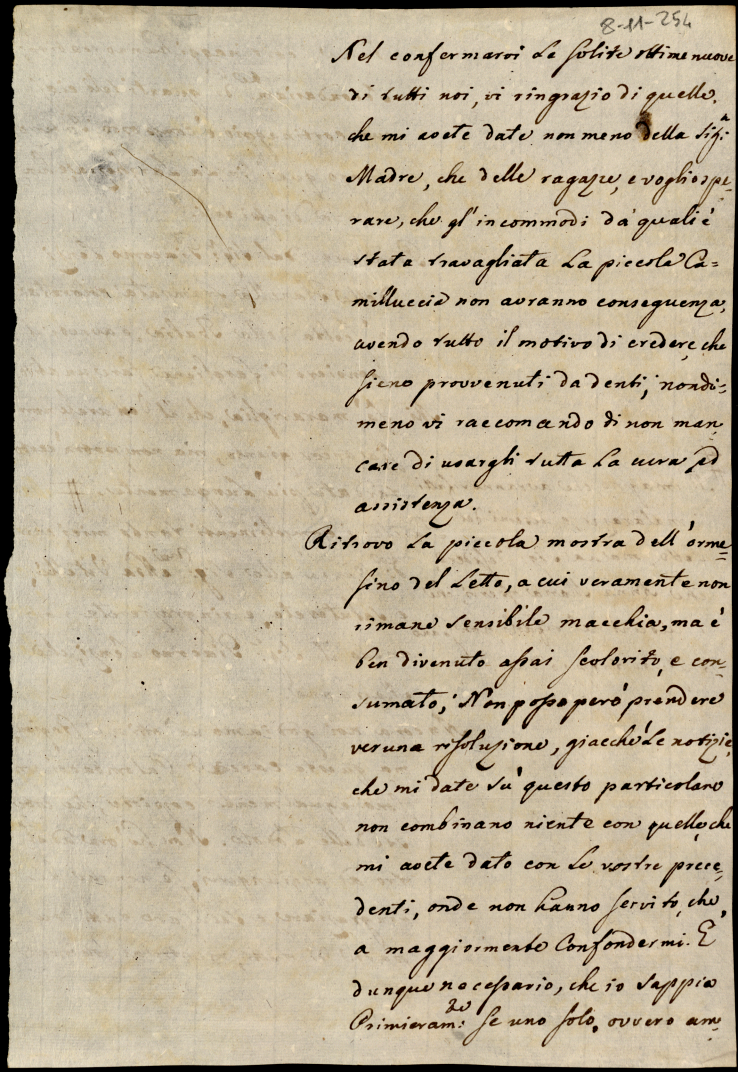 8-11-254
Nel confermarvi le solite ottime nuove
di tutti noi, vi ringrazio di quelle,
che mi avete date non meno della Sig:ª
Madre, che delle ragazze, e voglio spe=
rare, che gl'incommodi da' quali è
stata travagliata la piccola Ca=
milluccia non avranno conseguenza,
avendo tutto il motivo di credere, che
sieno provvenuti da denti; nondi=
meno vi raccomando di non man=
care di usargli tutta la cura ed
assistenza.
Ritrovo la piccola mostra dell'orme=
sino del Letto, a cui veramente non
rimane sensibile macchia, ma è
ben divenuto assai scolorito, e con=
sumato; Non posso però prendere
veruna risoluzione, giacchè le notizie,
che mi date sù questo particolare
non combinano niente con quelle, che
mi avete dato con le vostre prece=
denti, onde non hanno servito, che
a maggiormente confondermi. E'
dunque necessario, che io sappia
Primieram:te se uno solo, ovvero am=